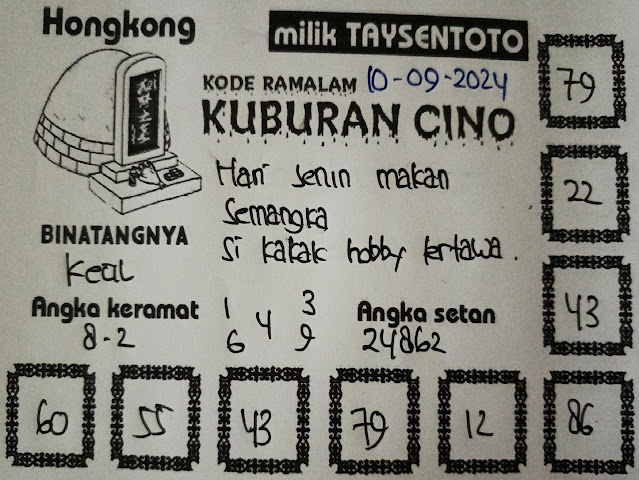 Hongkong
milik TAYSENTOTO
KODE RAMALAM 10-09-2024
KUBURAN CINO
79
Hari senin makan
semangka
si kakak hobby tertawa.
22
BINATANGNYA
Angka keramat
8-2
1 3
4
6 9
Angka setan
24862
43
60 55 43 79 12 86